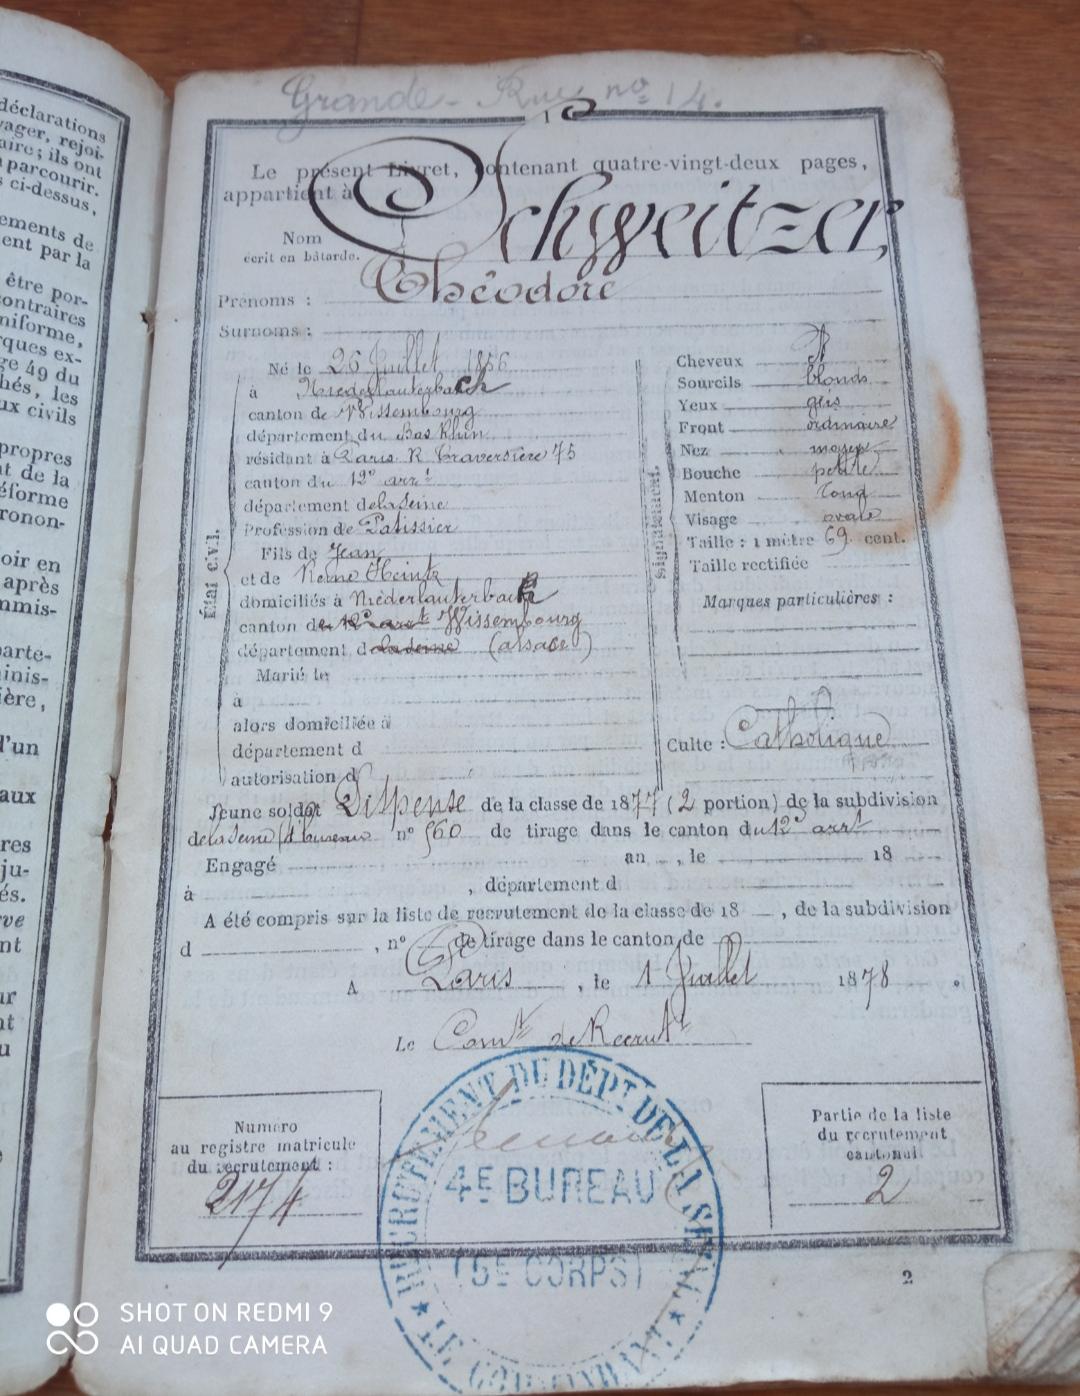 déclarations
vager, rejoi-
aire; ils ont
parcourir.
s ci-dessus,
ements de
ent par la
être por-
contraires
niforme,
rques ex-
ge 49 du
hés, les
ux civils
propres
t de la
éforme
ronon-
oir en
après
mmis-
parte-
inis-
ière,
d'un
aux
res
ju-
és.
rve
nt
ur
nt
u
Grande - Rue no 14.
1
Le présent Livret, contenant quatre-vingt-deux pages,
appartient à
Nom Schweitzer,
écrit en bâtarde.
Prénoms : Théodore
Surnoms :
État civil.
Né le 26 Juillet 1856
à Niederlauterbach
canton de Wissembourg
département du Bas Rhin
résidant à Paris R. Traversière 75
canton du 12e arrt
département de la Seine
Profession de Patissier
Fils de Jean
et de Heintz
domiciliés à Niederlauterbach
canton de Wissembourg
département d (alsace)
Marié le
à
alors domiciliée à
département d
autorisation d
Signalement.
Cheveux
Sourcils blonds
Yeux gris
Front ordinaire
Nez moyen
Bouche petite
Menton rond
Visage ovale
Taille : 1 mètre 69 cent.
Taille rectifiée
Marques particulières :
Culte : Catholique
Jeune soldat Dispensé de la classe de 1877 (2 portion) de la subdivision
de la Seine (4e bureau n° 560 de tirage dans le canton du 12e arrt
Engagé an , le 18
à , département d
A été compris sur la liste de recrutement de la classe de 18 , de la subdivision
d , n° de tirage dans le canton de
A Paris , le 1 Juillet 1878 .
Le Comt de Recrutt
RECRUTEMENT DU DÉPT DE LA SEINE
4E BUREAU
(5E CORPS)
★ LE COMMANDANT ★
Numéro
au registre matricule
du recrutement :
2174
Partie de la liste
du recrutement
cantonal
2
2
SHOT ON REDMI 9
AI QUAD CAMERA